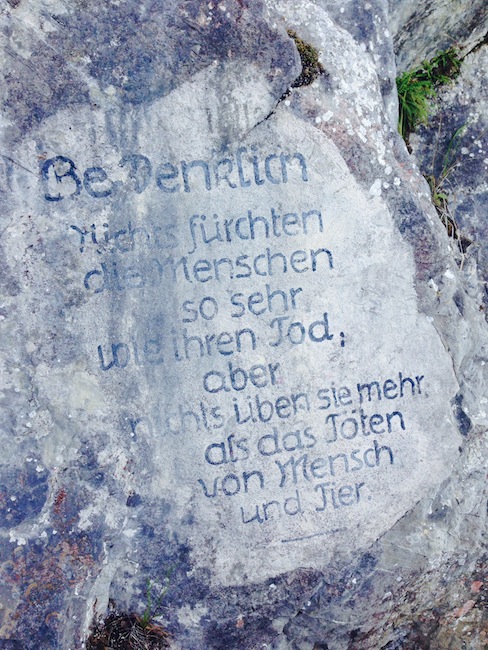 Bedenklich
Nichts fürchten
die Menschen
so sehr
wie ihren Tod,
aber
nichts üben sie mehr
als das Töten
von Mensch
und Tier.